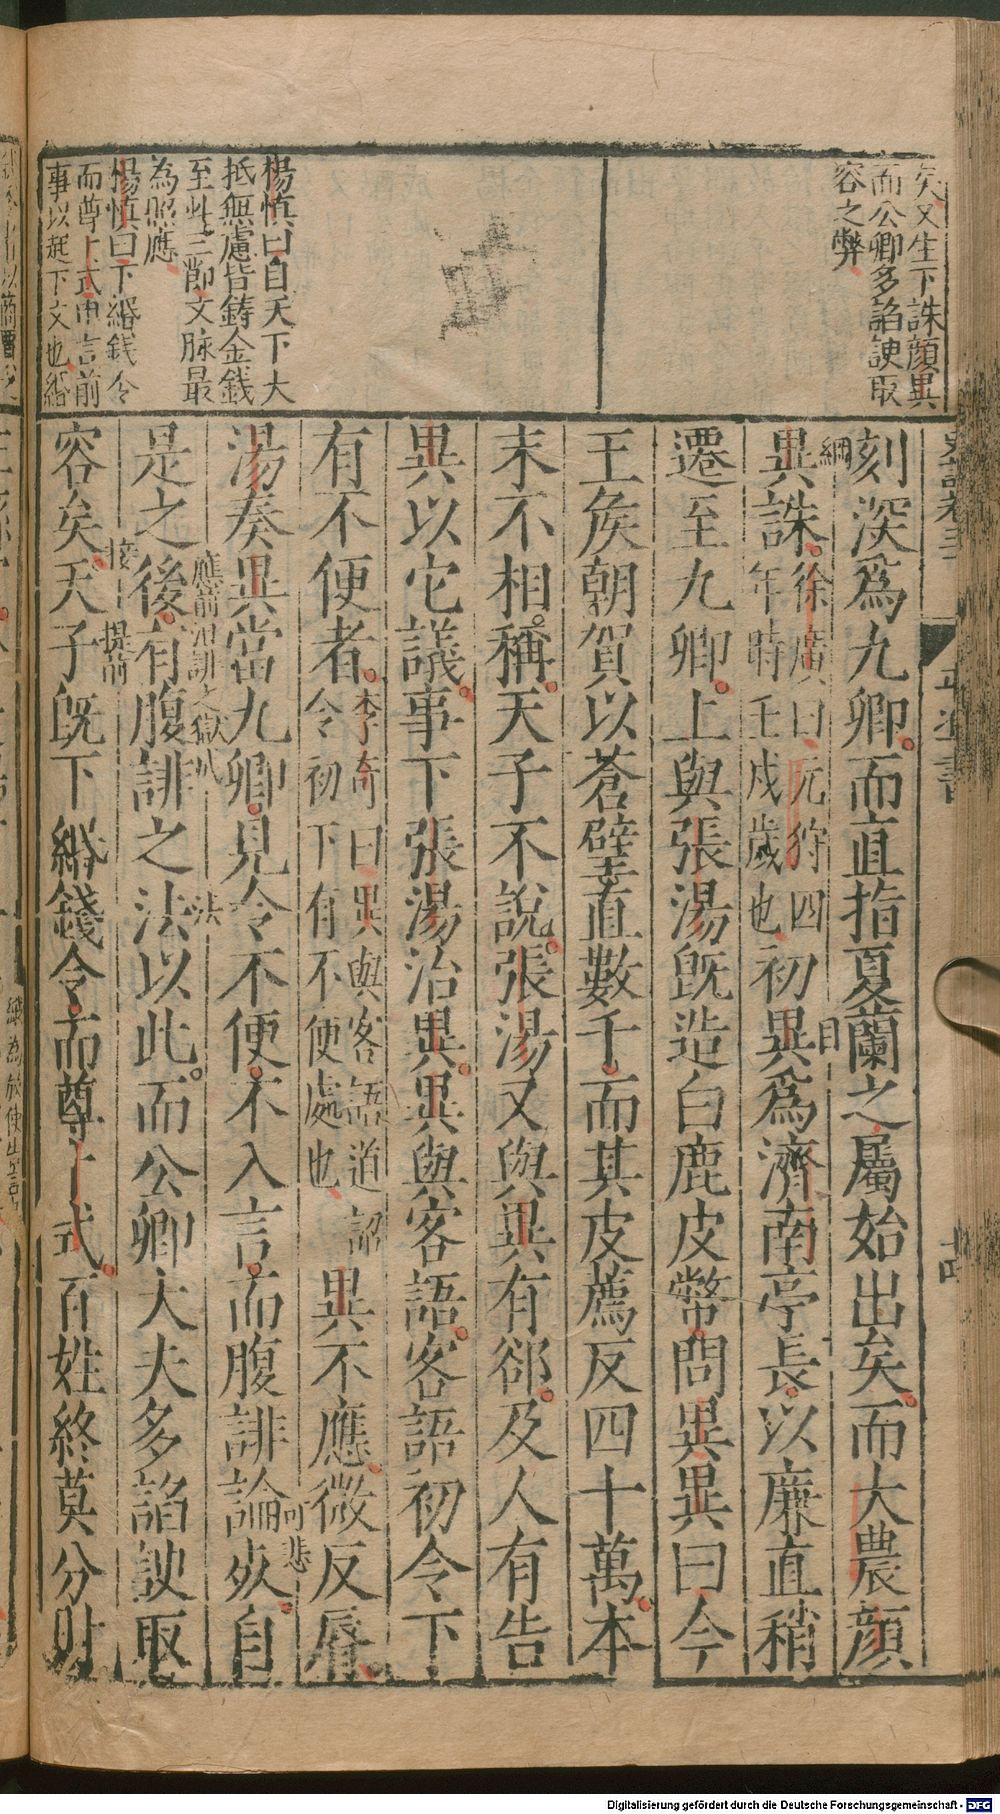 矣又生下誅顔異
而公卿多諂諛取
容之弊
楊慎曰自天下大
抵無慮皆鑄金錢
至此三節文脉最
為照應
楊慎曰下緡錢令
而尊卜式申言前
事以起下文也緡
刻深爲九卿而直指夏蘭之屬始出矣而大農顔
綱
目
異誅徐廣曰元狩四
年時壬戌歲也初異爲濟南亭長以廉直稍
遷至九卿上與張湯既造白鹿皮幣問異異曰今
王矦朝賀以蒼璧直數千而其皮薦反四十萬本
末不相稱天子不說張湯又與異有郤及人有告
異以它議事下張湯治異異與客語客語初令下
有不便者李奇曰異與客語道詔
令初下有不便處也異不應微反脣
可悲
湯奏異當九卿見令不便不入言而腹誹論死自
應前沮誹之獄
法
是之後有腹誹之法以此而公卿大夫多諂諛取
接
提前
容矣天子既下緡錢令而尊卜式百姓終莫分財
Digitalisierung gefördert durch die Deutsche Forschungsgemeinschaft - DFG